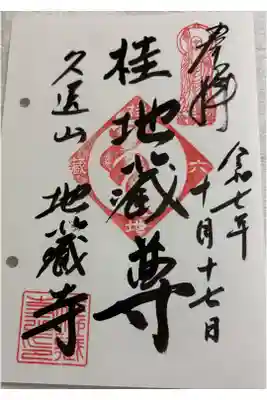 奉拝
令和七年
十月十七日
桂地蔵尊
久遠山
地蔵寺